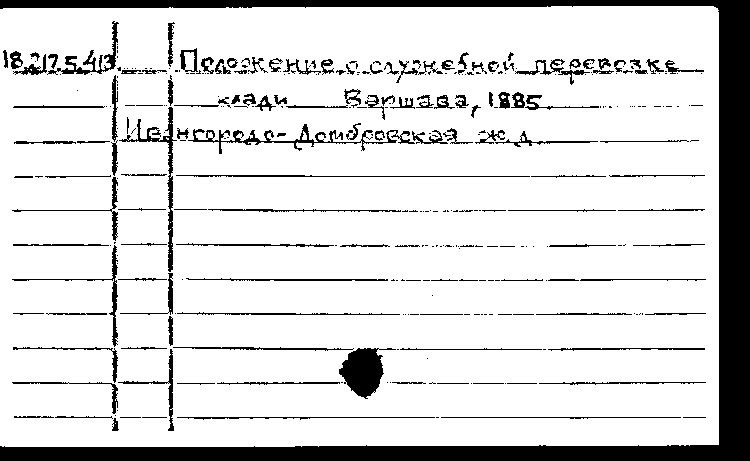 18.217.5.413 Положение о служебной перевозке
клади. Варшава, 1885.
Ивангородо-Домбровская ж.д.